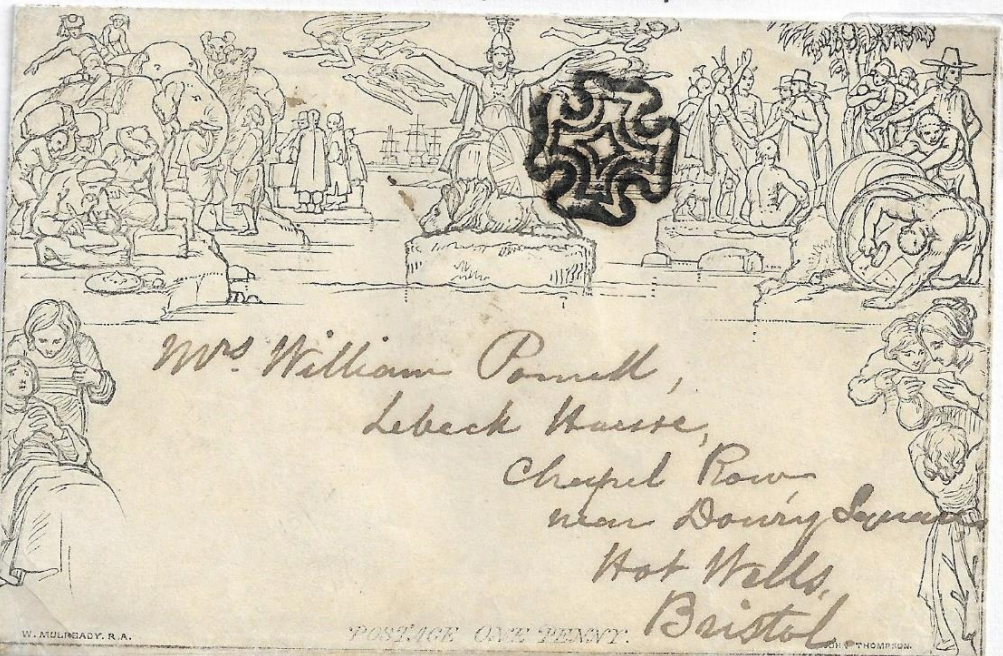 Mrs. William Powell,
Lebeck House,
Chapel Row,
near Dowry Square
Hot Wells,
Bristol.
W. MULREADY. R.A.
POSTAGE ONE PENNY.
JOHN THOMPSON.